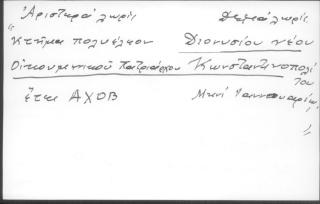 Ἀριστερά λωρίς Δεξιά λωρίς
"Κτῆμα πολυέλεον Διονυσίου νέου
Οἰκουμενικοῦ Πατριάρχου Κωνσταντινοπόλε
ἔτει ΑΧΟΒ Μηνί Ἰαννουαρίῳ"